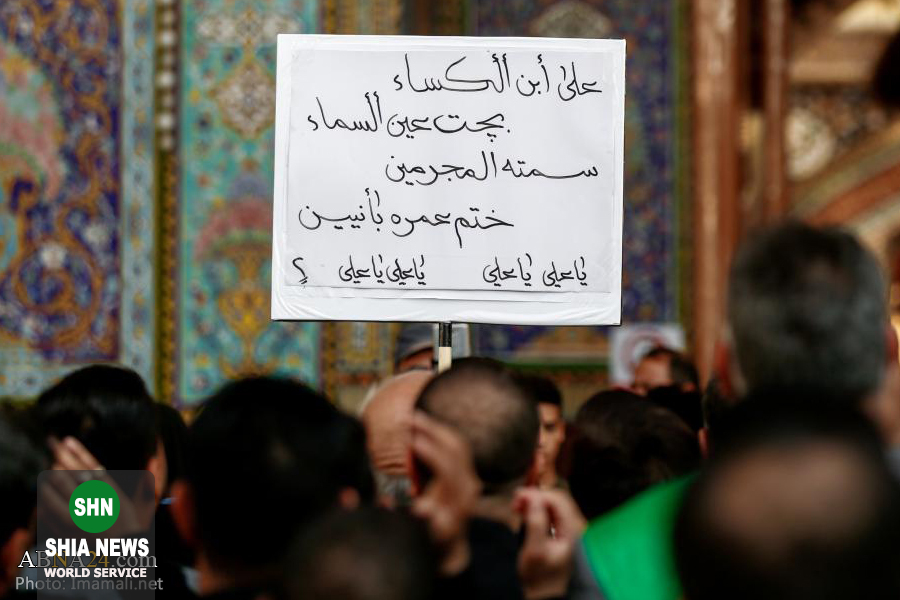 علىٰ أبن ألكساء
بچت عين ألسماء
سمته المجرمين
ختم عمره بأنيين
يٰاعلي يٰاعلي يٰاعلي يٰاعلي ؟
SHN
SHIA NEWS
ABNA24.com
WORLD SERVICE
Photo: Imamali.net